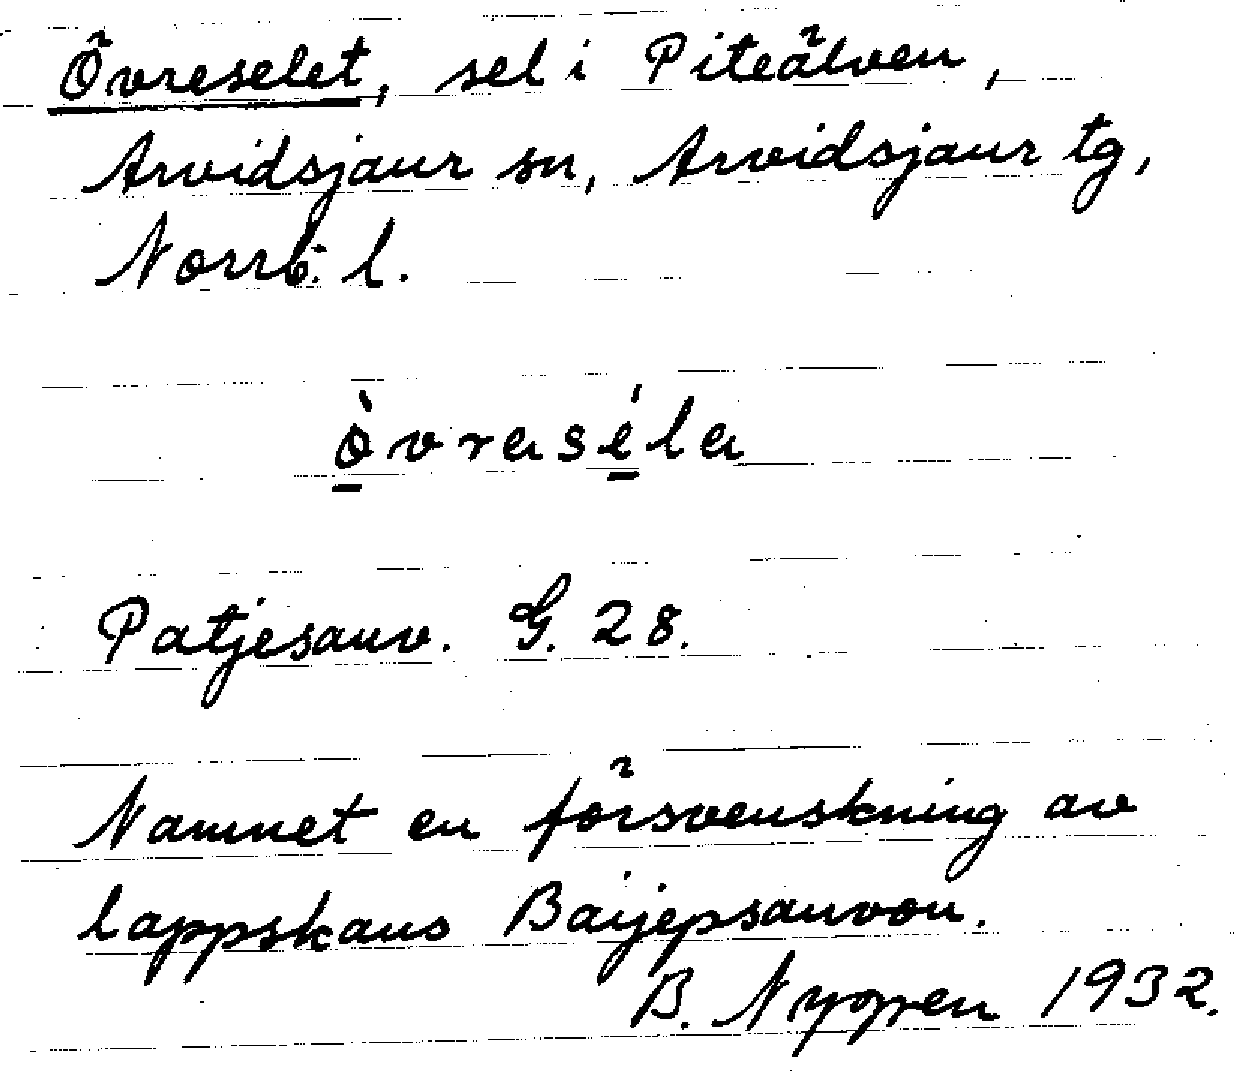 Övreselet, sel i Piteälven,
Arvidsjaur sn, Arvidsjaur tg,
Norrb. l.
ò̱vrasé̱la
Patjesauv. G. 28.
Namnet en försvenskning av
lappskans Baijepsauvon.
B. Nygren 1932.